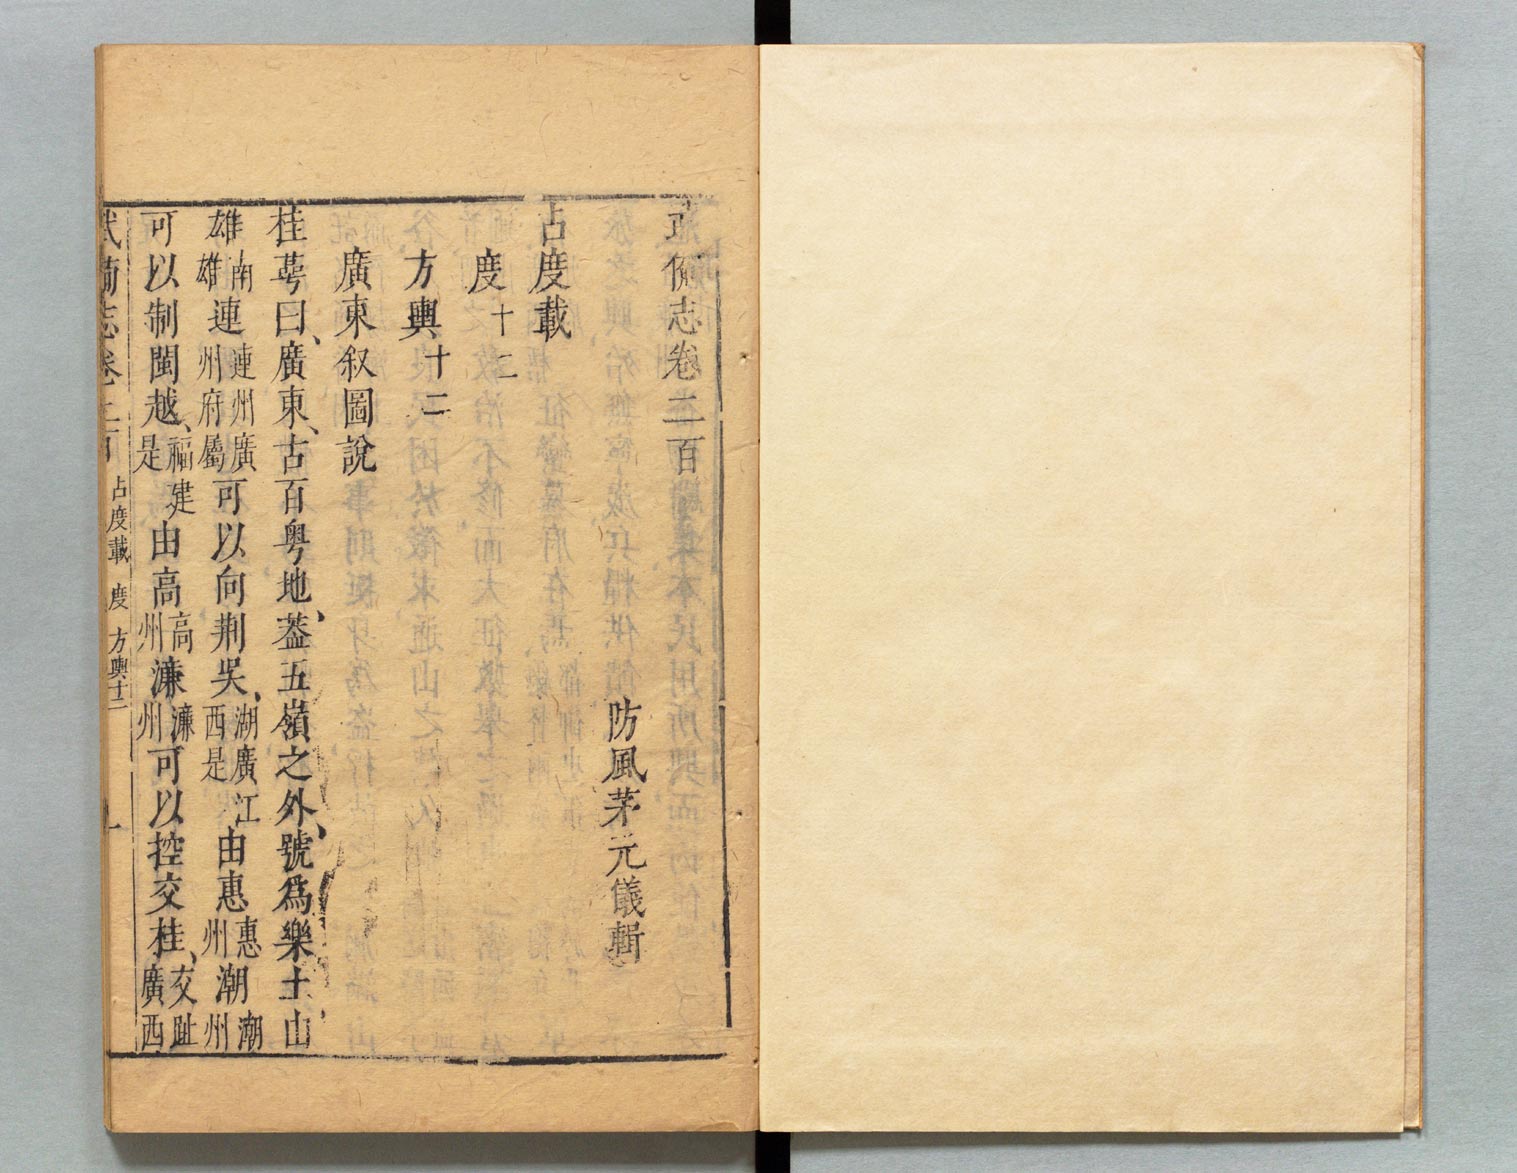 武備志卷二百
防風茅元儀輯
占度載
度十二
方輿十二
廣東叙圖說
桂萼曰、廣東、古百粤地、葢五嶺之外、號爲樂土、山
雄南雄連連州廣州府屬可以向荆吳、湖廣江西是由惠惠州潮潮州
可以制閩越、福建是由高高州濂濂州可以控交桂、交趾廣西
武備志卷二百 占度載 度 方輿十二 一